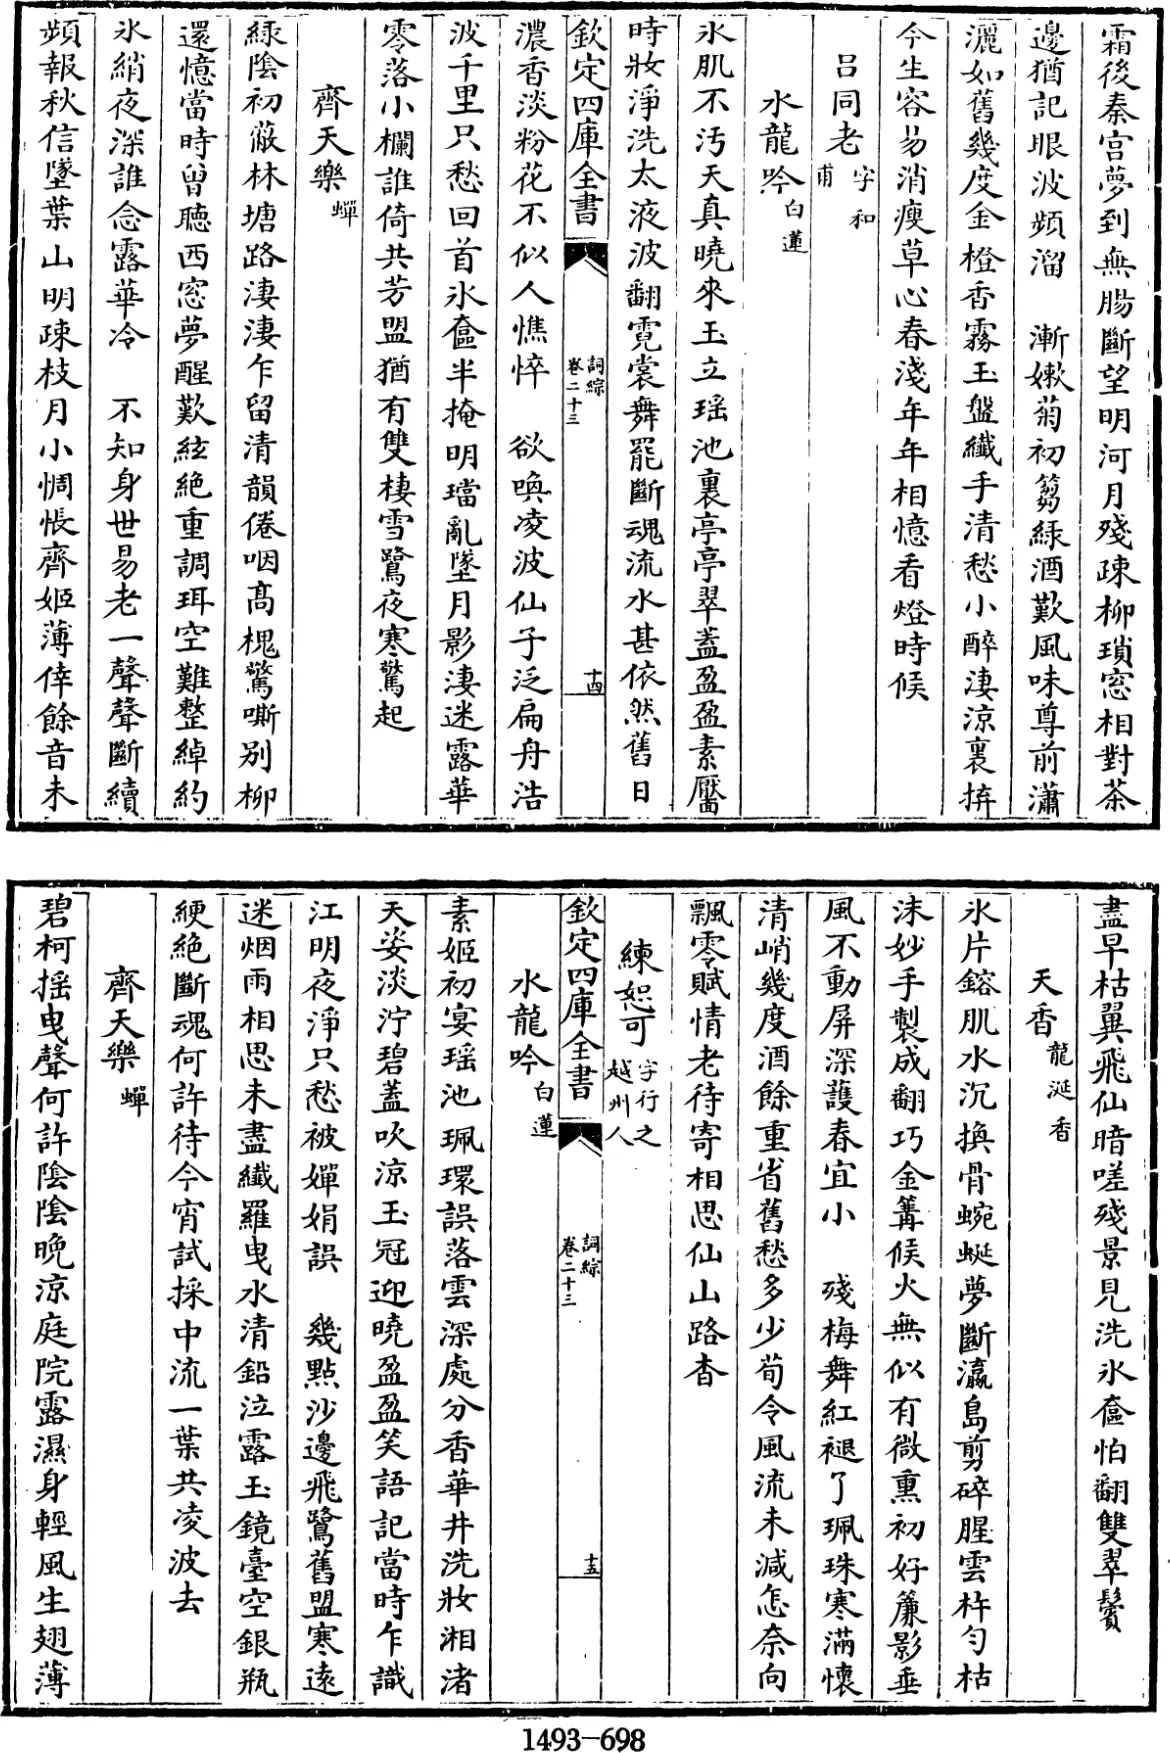 霜後秦宫夢到無腸斷望明河月殘疎柳瑣窓相對茶
邊猶記眼波頻溜　漸嫰菊初篘緑酒歎風味尊前瀟
灑如舊幾度金橙香霧玉盤纎手清愁小醉淒涼裏拚
今生容易消瘦草心春淺年年相憶看燈時候
吕同老字和甫
水龍吟白蓮
氷肌不汚天真曉來玉立瑶池裏亭亭翠葢盈盈素靨
時妝淨洗太液波翻霓裳舞罷斷魂流水甚依然舊日
欽定四庫全書
詞綜
卷二十三
十四
濃香淡粉花不似人憔悴　欲喚凌波仙子泛扁舟浩
波千里只愁回首氷奩半掩明璫亂墜月影淒迷露華
零落小欄誰倚共芳盟猶有雙棲雪鷺夜寒驚起
齊天樂蟬
緑陰初蔽林塘路淒淒乍留清韻倦咽髙槐驚嘶别柳
還憶當時曾聴西窓夢醒歎絃絶重調珥空難整綽約
氷綃夜深誰念露華冷　不知身世易老一聲聲斷續
頻報秋信墜葉山明疎枝月小惆悵齊姬薄倖餘音未
盡早枯翼飛仙暗嗟殘景見洗氷奩怕翻雙翠鬢
天香龍涎香
氷片鎔肌水沉換骨蜿蜒夢斷瀛島剪碎腥雲杵勻枯
沫妙手製成翻巧金篝候火無似有微熏初好簾影垂
風不動屏深護春宜小　殘梅舞紅褪了珮珠寒滿懷
清峭幾度酒餘重省舊愁多少荀令風流未減怎奈向
飄零賦情老待寄相思仙山路杳
練恕可字行之越州人
欽定四庫全書
詞綜
卷二十三
十五
水龍吟白蓮
素姬初宴瑶池珮環誤落雲深處分香華井洗妝湘渚
天姿淡泞碧蓋吹涼玉冠迎曉盈盈笑語記當時乍識
江明夜淨只愁被嬋娟誤　幾點沙邊飛鷺舊盟寒逺
迷烟雨相思未盡纎羅曳水清鉛泣露玉鏡臺空銀瓶
綆絶斷魂何許待今宵試採中流一葉共凌波去
齊天樂蟬
碧柯揺曳聲何許陰陰晚涼庭院露濕身輕風生翅薄
1493–698